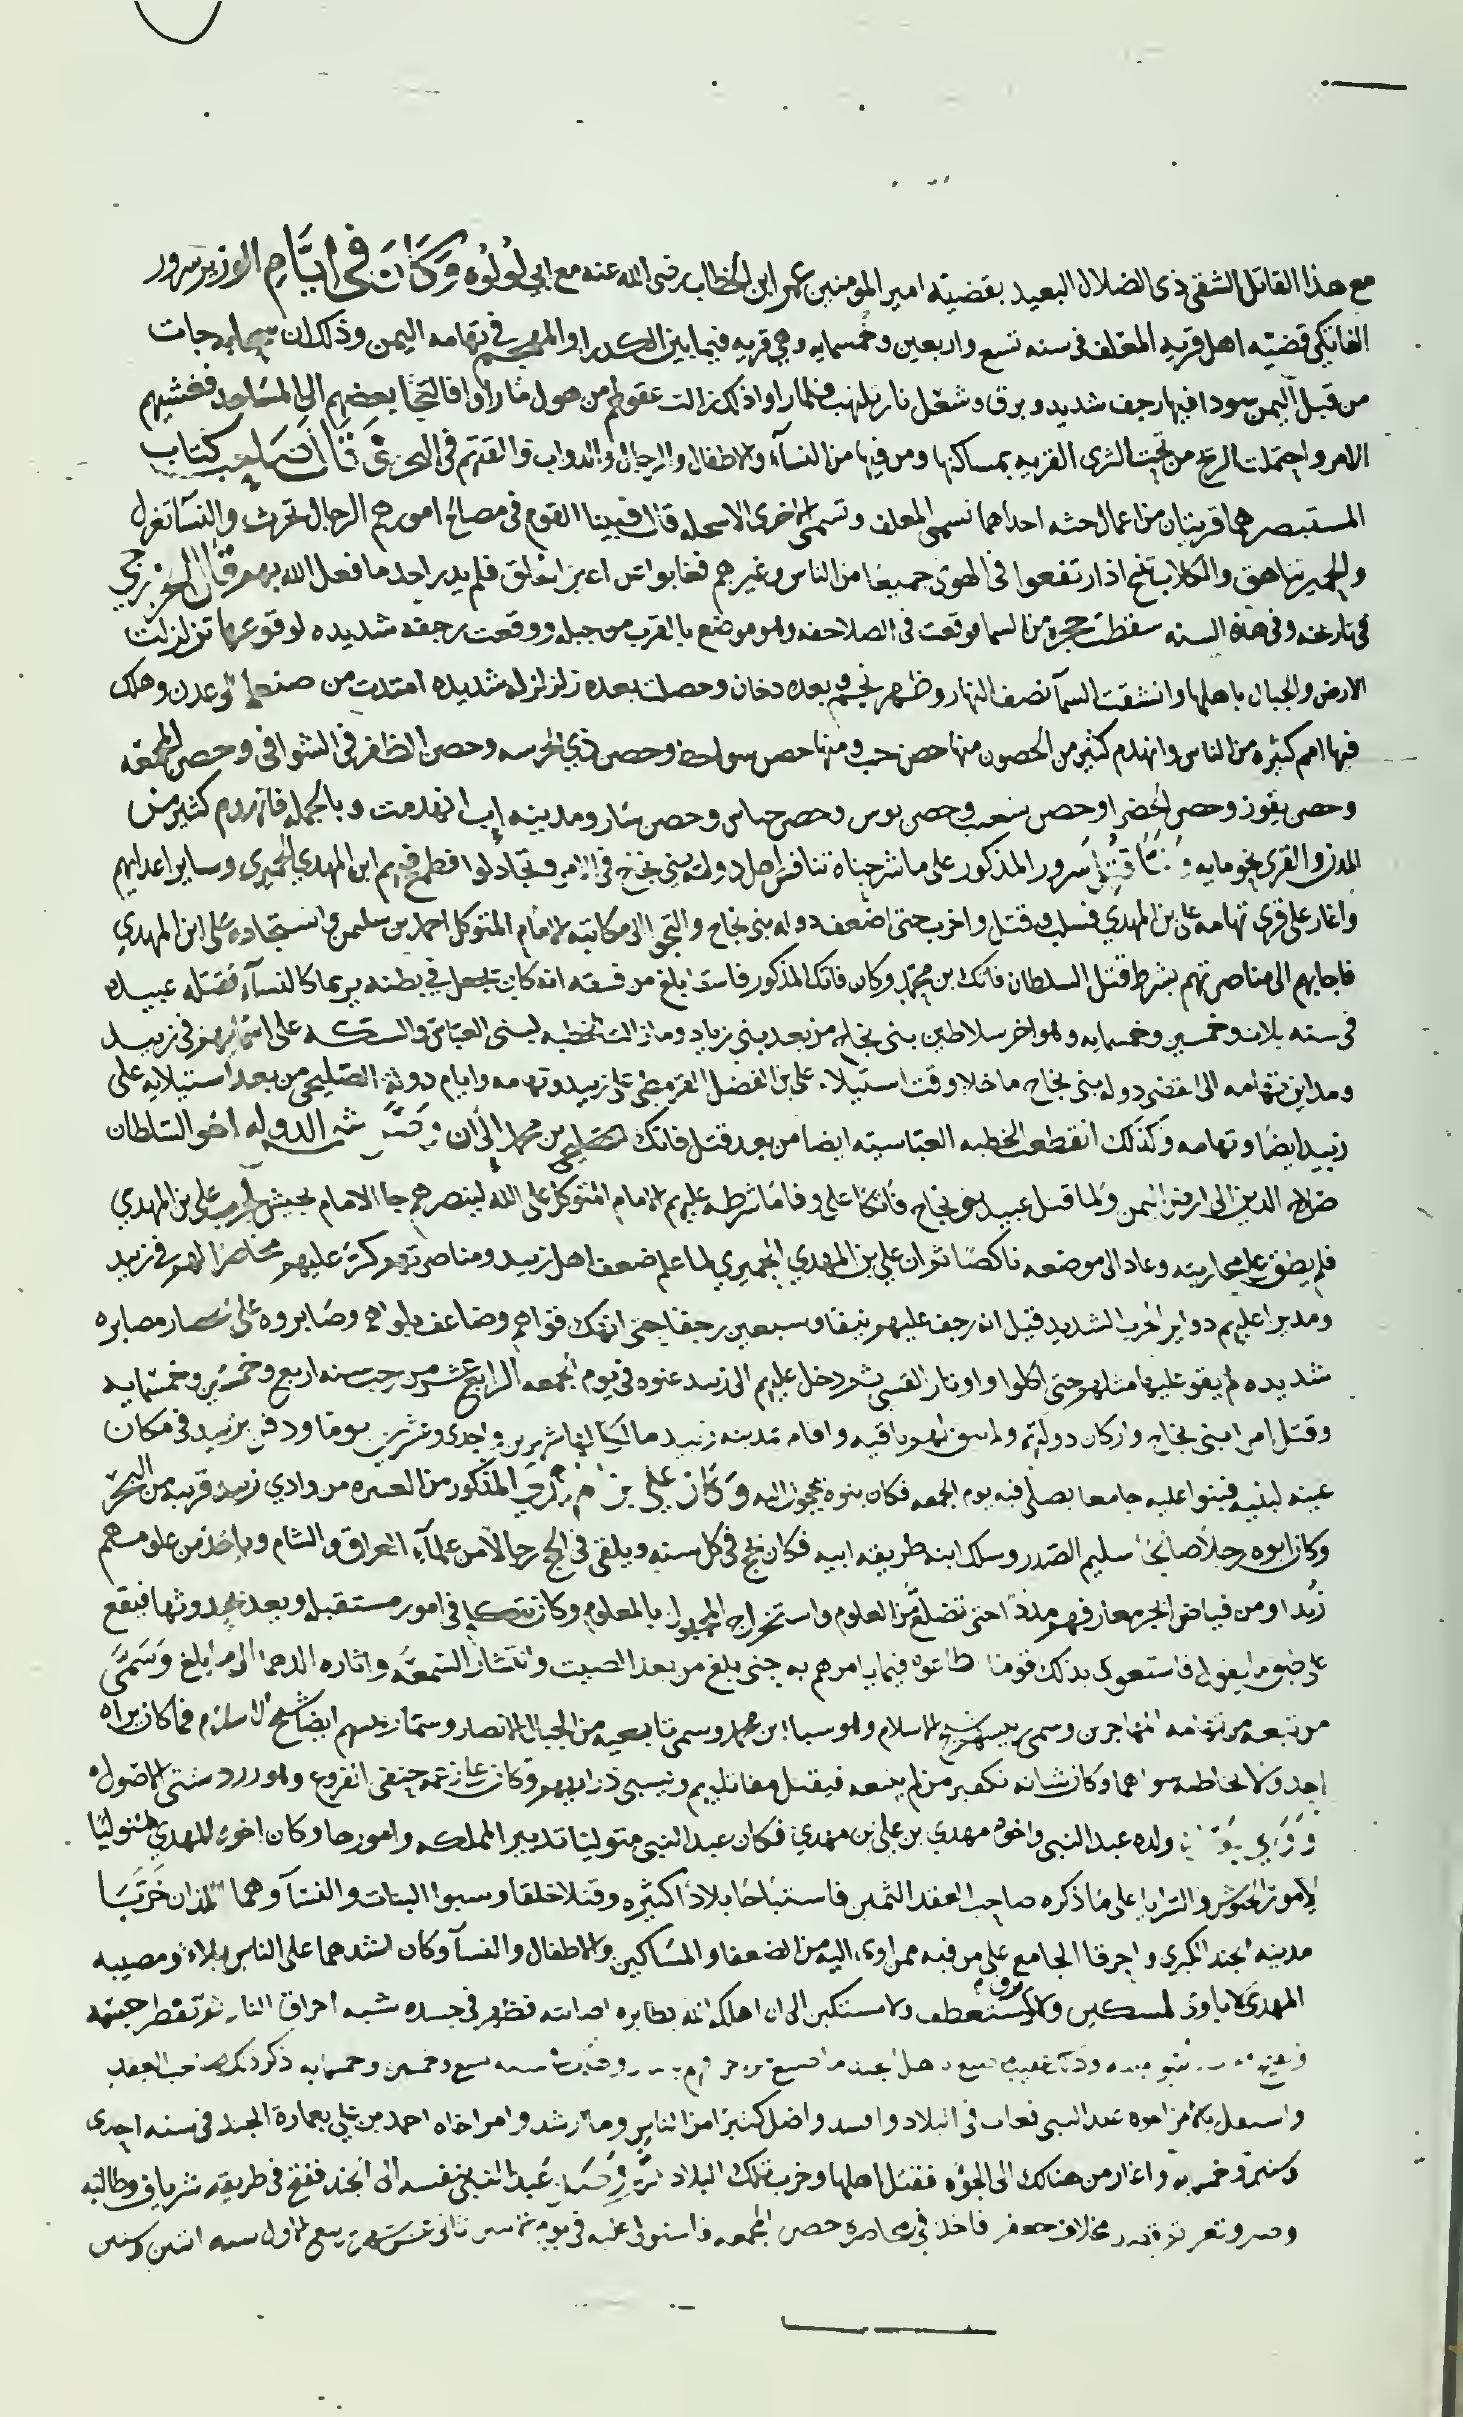 مع هذا القاتل الشقي ذي الضلال البعيد بقضيته امير المومنين عمر ابن الخطاب رضى الله عنه مع ابي لولوه وكانت في ايام الوزير سرور
الفاتكي قضيته اهل قريه المغلف فى سنه تسع واربعين وخمسمايه وهي قريه فيما بين الكدرا والمهجم في تهامه اليمن وذلك ان سحابه جات
من قبل اليمن سودا فيها رجف شديد وبرق وشعل نار تلتهب فلما راوا ذلك زالت عقولهم من هول ما راوا فالتجا بعضهم الى المساجد فغشيهم
الامر واحتملت الريح من تحت الثرى القريه بمساكنها ومن فيها من النسآء والاطفال والرجال والدواب والقتهم في البحر قال صاحب كتاب
المستبصر هما قريتان من اعمال احداهما تسمى المغلف وتسمى الاخرى الاسحله قال فبينا القوم في مصالح امورهم الرجال تحرث والنسآ تغزل
والحمير تناهق والكلاب تنبح اذ ارتفعوا فى الهوى جميعا من الناس وغيرهم فغابوا عن اعين الخلق فلم يدر احد ما فعل الله بهم وقال الخزرجي
في تاريخه وفي هذه السنه سقطت حجره من السما فوقعت في الصلاحفه وهو موضع بالقرب من جبله ووقعت رجفه شديده لوقوعها تزلزلت
الارض والجبال باهلها وانشقت السمآ نصف النهار وظهر نجم بعده دخان وحصلت بعده زلزله شديده امتدت من صنعا الى عدن وهلك
فيها امم كثيره من الناس وانهدم كثير من الحصون منها حصن حب ومنها حصن وحصن وحصن الظفر في الشوافي وحصن
وحصن يفوز وحصن الخضرا وحصن وحصن وحصن وحصن ومدينه اب انهدمت وبالجمله فانهدم كثير من
المدن والقرى نحو مايه ولما قتل سرور المذكور على ما شرحناه تنافس اهل دولة بني نجاح في الامر وتجادلوا فطمع فيهم ابن المهدي الحميري وساير اعدايهم
واغار على قرى تهامه علي بن المهدي فسلب وقتل واخرب حتى اضعف دوله بني نجاح والتجوا الى مكاتبه الامام المتوكل احمد بن سليمن واستنجاده على ابن المهدي
فاجابهم الى مناصرتهم بشرط قتل السلطان فاتك بن محمد وكان فاتك المذكور فاسقا بلغ من فسقه انه كان في بطنه كالنسآء فقتله عبيده
في سنه ثلاث وخمسين وخمسمايه وهو اخر سلاطين بني نجاح من بعد بني زياد وما زالت الخطبه لبنى العباس والسكه على اسمايهم في زبيد
ومداين تهامه الى انقضى دوله بنى نجاح ما خلا وقت استيلاء علي بن الفضل القرمطي على زبيد وتهامه وايام دولة الصليحي من بعد استيلايه على
زبيد ايضا وتهامه وكذلك انقطعت الخطبه العباسيه ايضا من بعد قتل فاتك بن محمد الى ان وصل شمس الدوله اخو السلطان
صلاح الدين الى ارض اليمن ولما قتل عبيد بنى نجاح فاتكا على وفا ما شرطه عليهم الامام المتوكل على الله لينصرهم جا الامام بجيش لحرب علي بن المهدي
فلم يطق على محاربته وعاد الى موضعه ناكصا ثم ان علي بن المهدي الحميري لما علم ضعف اهل زبيد ومناصرتهم كر عليهم محاصرا لهم في زبيد
ومديرا عليهم دواير الحرب الشديد قيل انه زحف عليهم نيفا وسبعين زحفا حتى انهك قواهم وضاعف بلواهم وصابروه على حصار مصابره
شديده لم يقو عليها مثلهم حتى اكلوا اوتار القسي ثم دخل عليهم الى زبيد عنوه في يوم الجمعه الرابع عشر من رجب سنه اربع وخمسين وخمسمايه
وقتل امرا بني نجاح واركان دولتهم ولم يبق لهم باقيه واقام بمدينه زبيد مالكا لها شهرين واحدى وعشرين يوما ودفن بزبيد في مكان
عينه لبنيه فبنوا عليه جامعا يصلى فيه يوم الجمعه فكان بنوه يحجون اليه وكان علي بن مهدي المذكور من العنبره من وادي زبيد قريبه من البحر
وكان ابوه رجلا صالحا سليم الصدر وسلك ابنه طريقه ابيه فكان يحج في كل سنه ويلقى في الحج رجالا من علمآء العراق والشام وياخذ من علومهم
زبدا ومن فيافى ابحر معارفهم مددا حتى تضلع من العلوم واستخراج المجهول بالمعلوم وكان يتكلم في امور مستقبله وبعد حدوثها فيقع
على وفق ما يقول فاستهوى بذلك قوما طاعوه فيما يامرهم به حتى بلغ من بعد الصيت وانتشار السمعه واثاره الدهما الى ما بلغ وسمى
من تبعه من تهامه المهاجرين وسمى رييسهم شيخ الاسلام وهو سبا ابن محمد وسمى تابعيه من الجبال الانصار وسما رييسهم ايضا شيخ الاسلام فما كان يراه
احد ولا يخاطبه سواهما وكان شانه تكفير من لم يتبعه فيقتل مقاتليهم ويسبي ذراريهم وكان حنفي الفروع وهو سنى الاصول
ولده عبد النبي واخوه مهدي بن علي بن مهدي فكان عبد النبي متوليا تدبير المملكه وامورها وكان اخوه المهدي متوليا
لامور الجيوش والسرايا على ما ذكره صاحب العقد الثمين فاستباحا بلادا كثيره وقتلا خلقا وسبوا البنات والنسآ وهما اللذان خربا
مدينه الجند الكبرى واحرقا الجامع على من فيه ممن اوى اليه من الضعفا والمساكين والاطفال والنسآ وكان اشدهما على الناس بلاء ومصيبه
المهدى لا ياوى لمسكين ولا لمستعطف ولا مستكين الى ان اهلكه الله اصابته فظهر في جسده شبه احراق النار ثم تقطر جسمه
سنه تسع وخمسين وخمسمايه ذكر ذلك صاحب العقد
واستقل بالامر اخوه عبد النبي فعاث في البلاد وافسد واضل كثيرا من الناس وما ارشد وامر اخاه احمد بن علي بعمارة الجند في سنه احدى
وستين وخمسمايه واغار من هنالك الى الجوه فقتل اهلها وخرب تلك البلاد ثم عبد النبي بنفسه الى الجند ففتح في طريقه
وتعز مخلاف جعفر فاخذ في محاصره حصن فاستولى عليه في يوم ثانى عشر شهر ربيع الاول سنه اثنين وستين